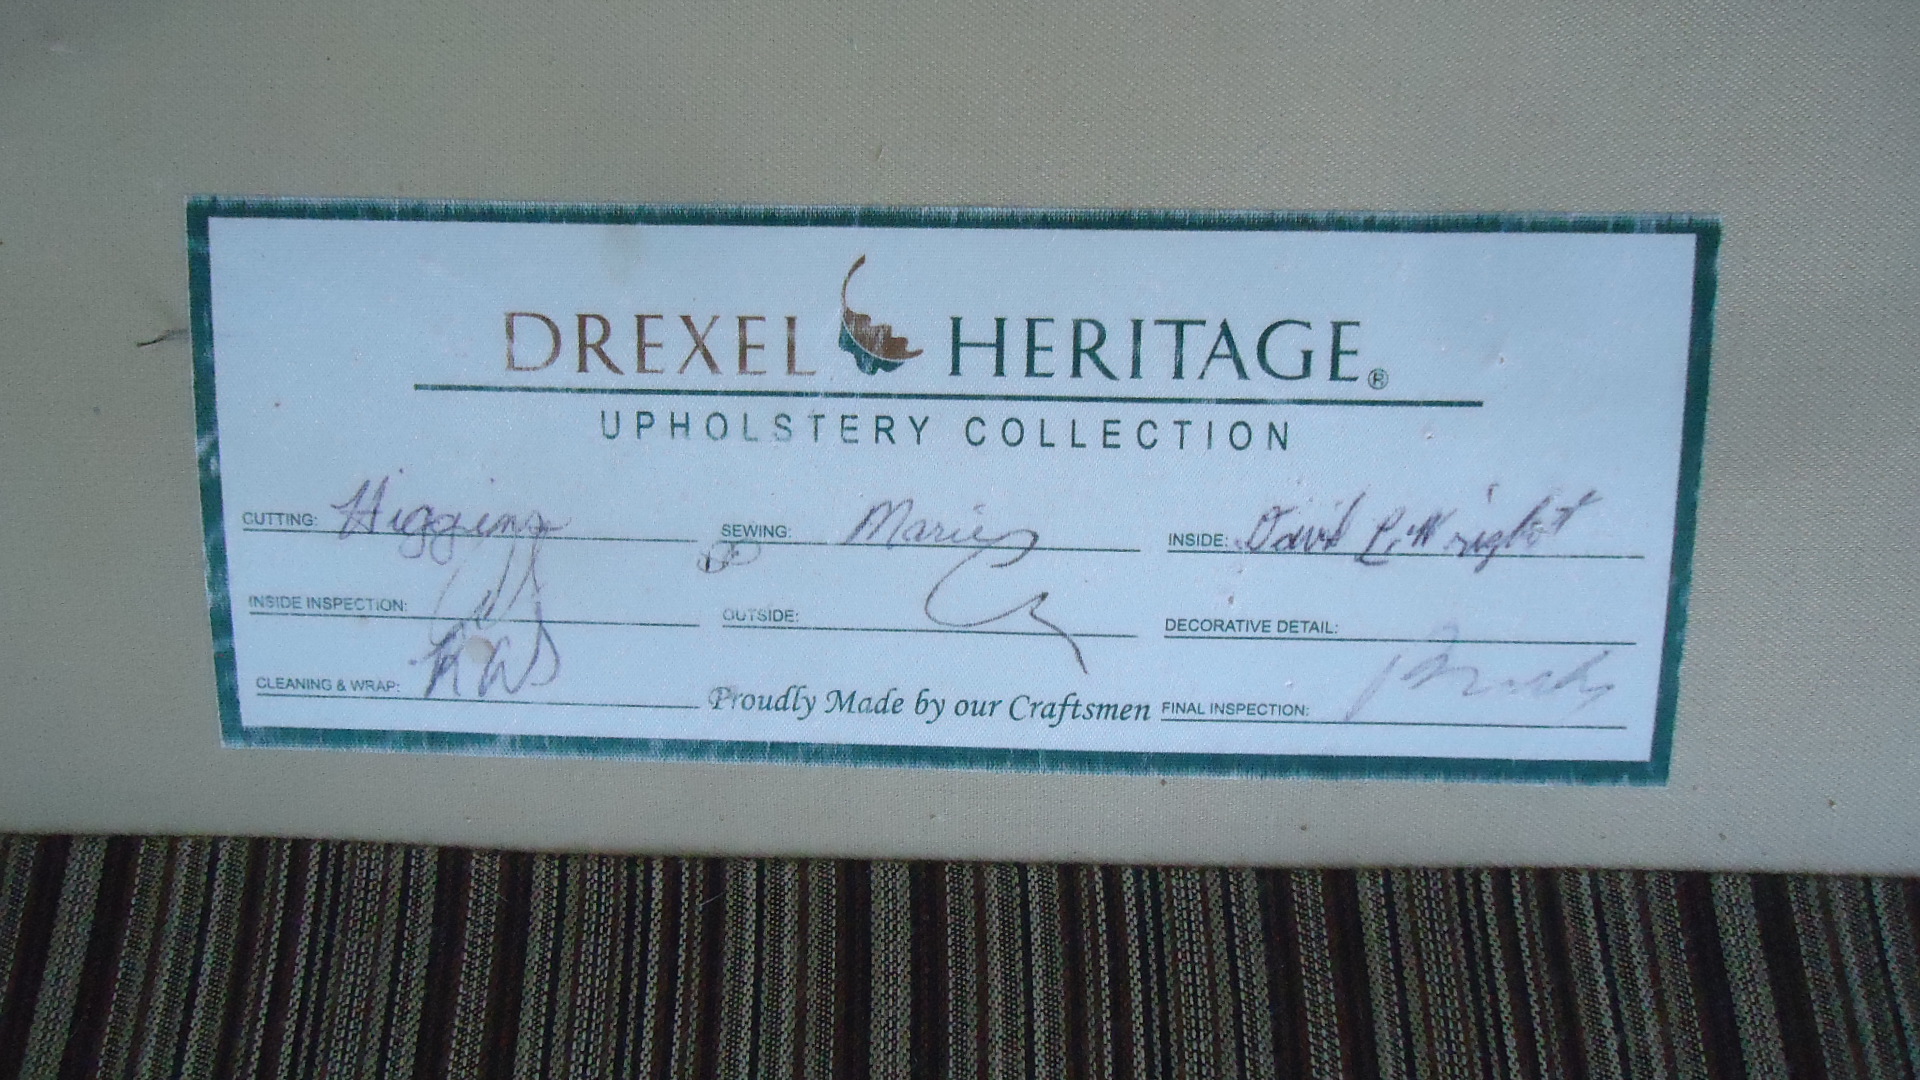 DREXEL HERITAGE®
UPHOLSTERY COLLECTION
CUTTING: Higgins SEWING: Marie INSIDE: David L. Wright
INSIDE INSPECTION: OUTSIDE: DECORATIVE DETAIL:
CLEANING & WRAP: Proudly Made by our Craftsmen FINAL INSPECTION: